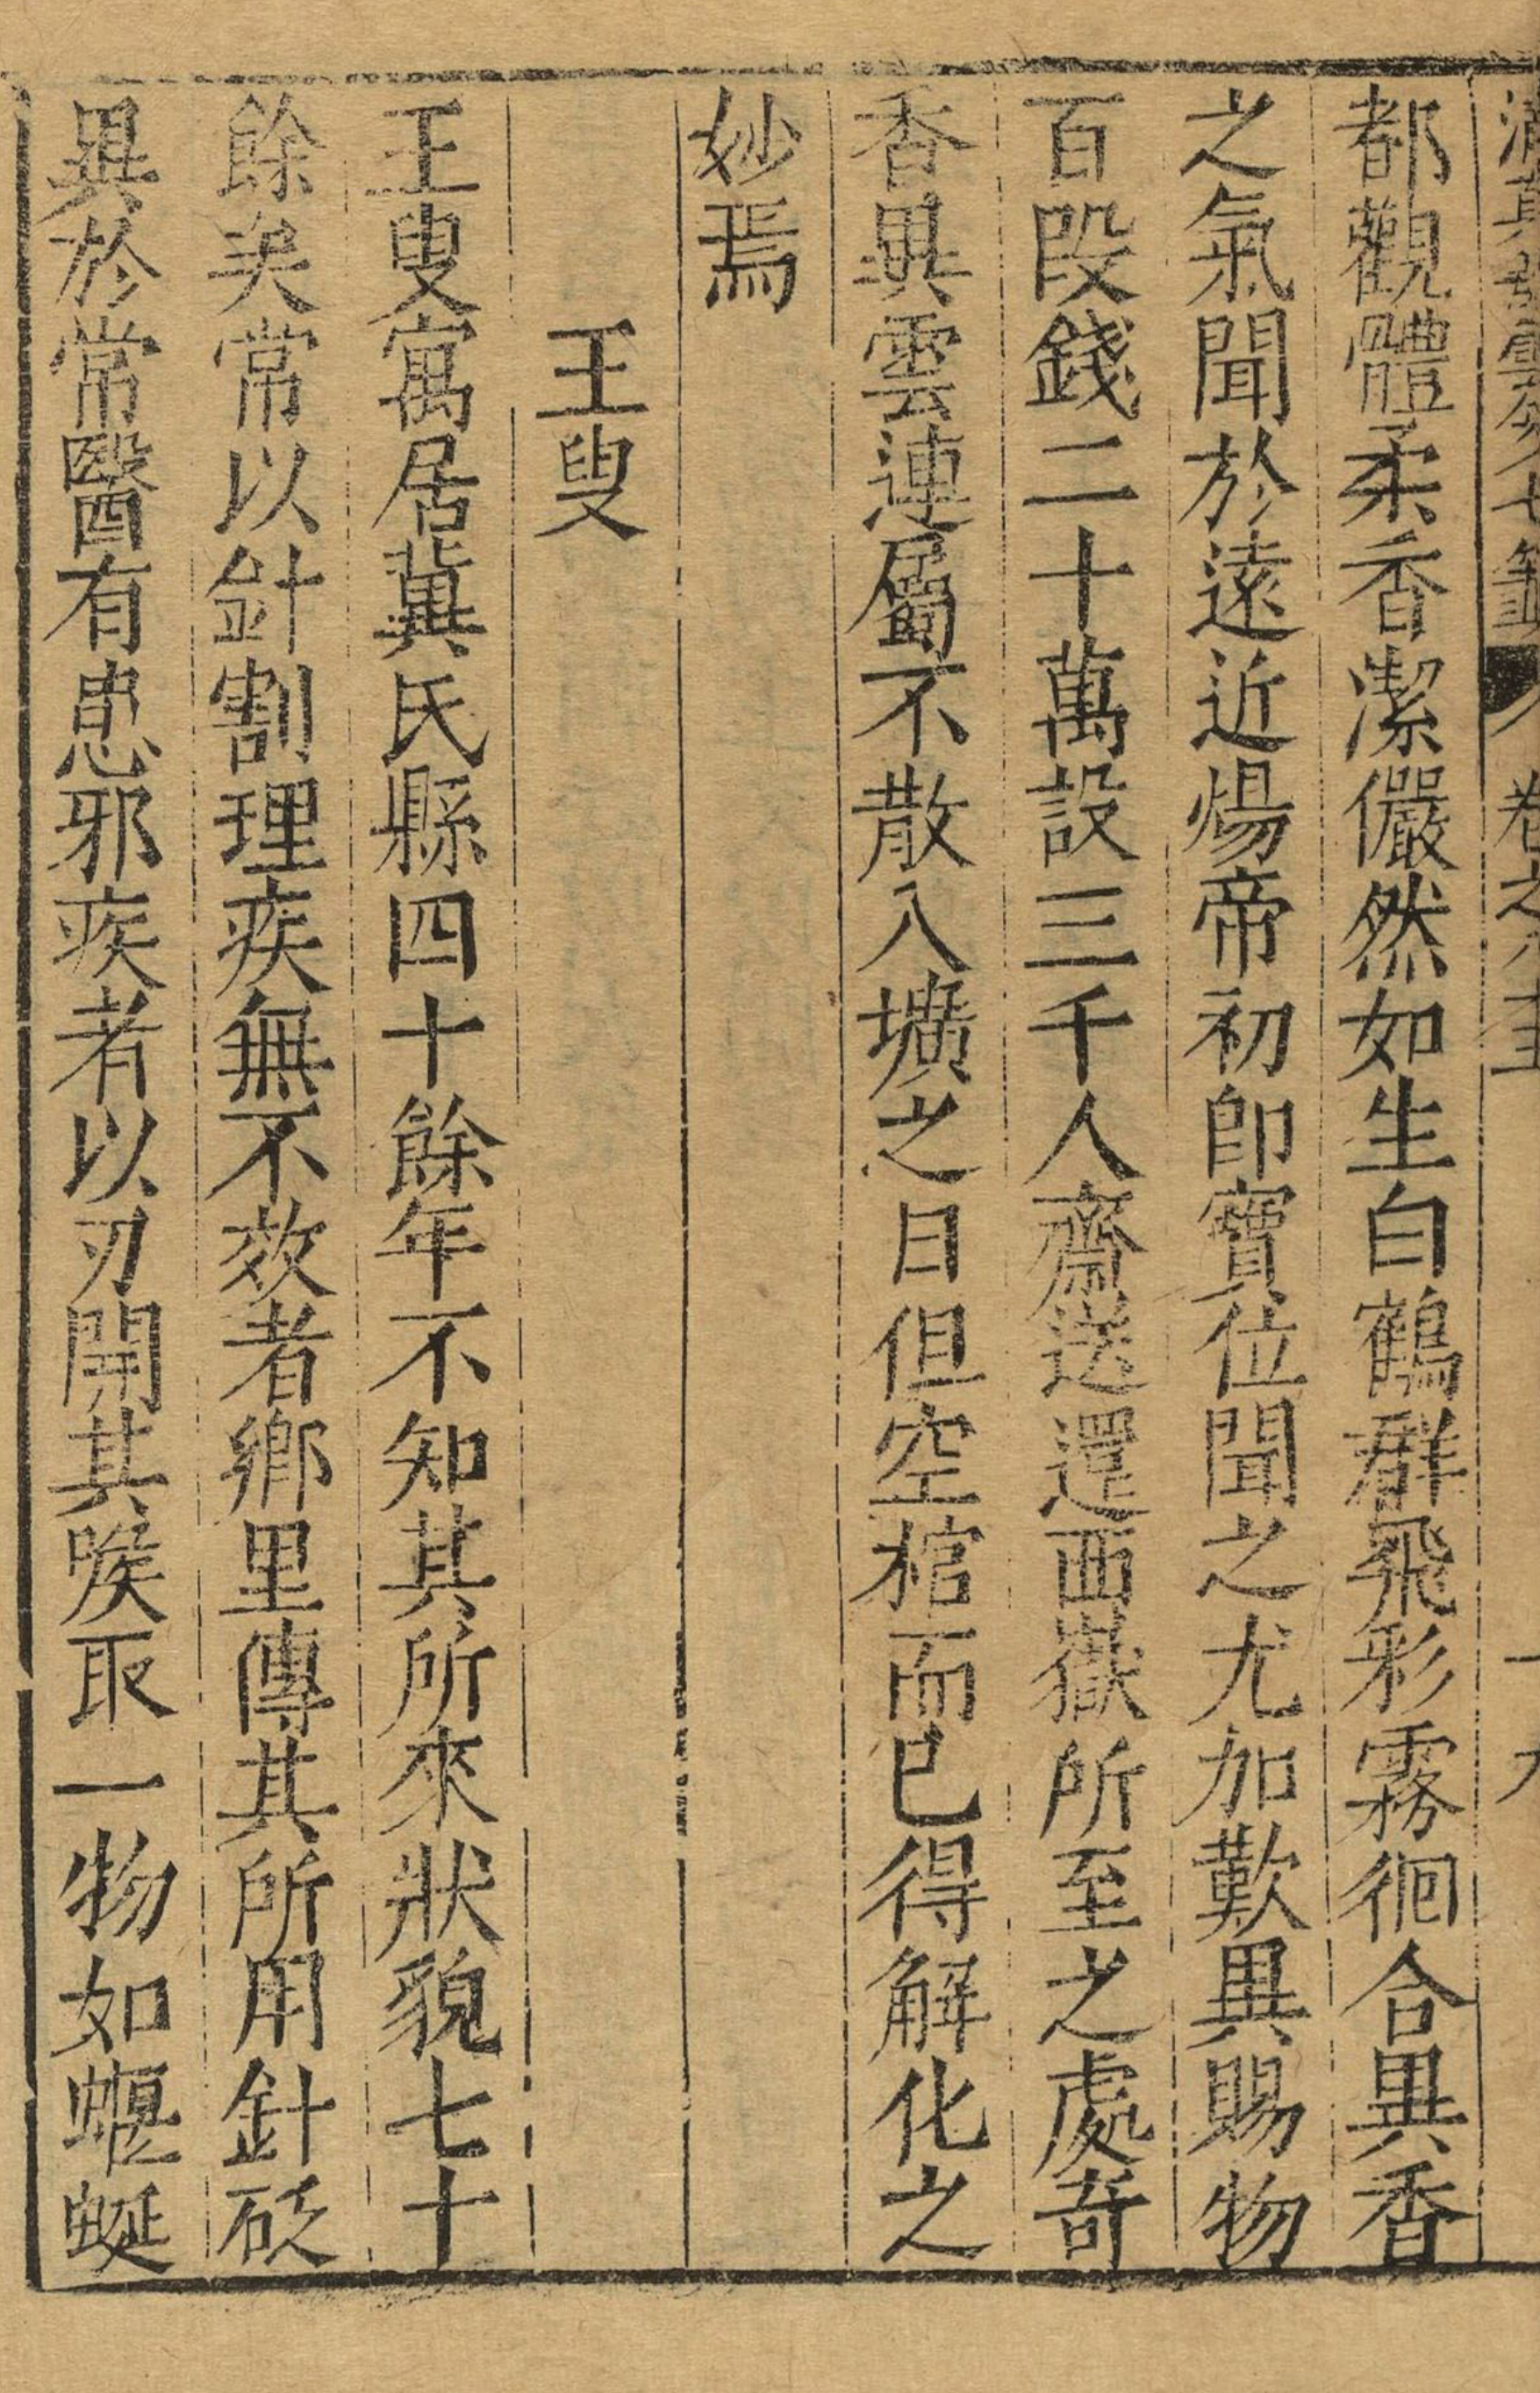 清真雲笈七籤 卷之八十五 十九
都觀體柔香潔儼然如生白鶴群飛彩霧徊合異香
之氣聞於遠近煬帝初即寶位聞之尤加歎異賜物
百段錢二十萬設三千人齋送還西嶽所至之處奇
香異雲連屬不散入壙之日但空棺而已得解化之
妙焉
王叟
王叟寓居冀氏縣四十餘年不知其所來狀貌七十
餘矣常以針割理疾無不效者鄉里傳其所用針砭
異於常醫有患邪疾者以刃開其喉取一物如蝘蜒